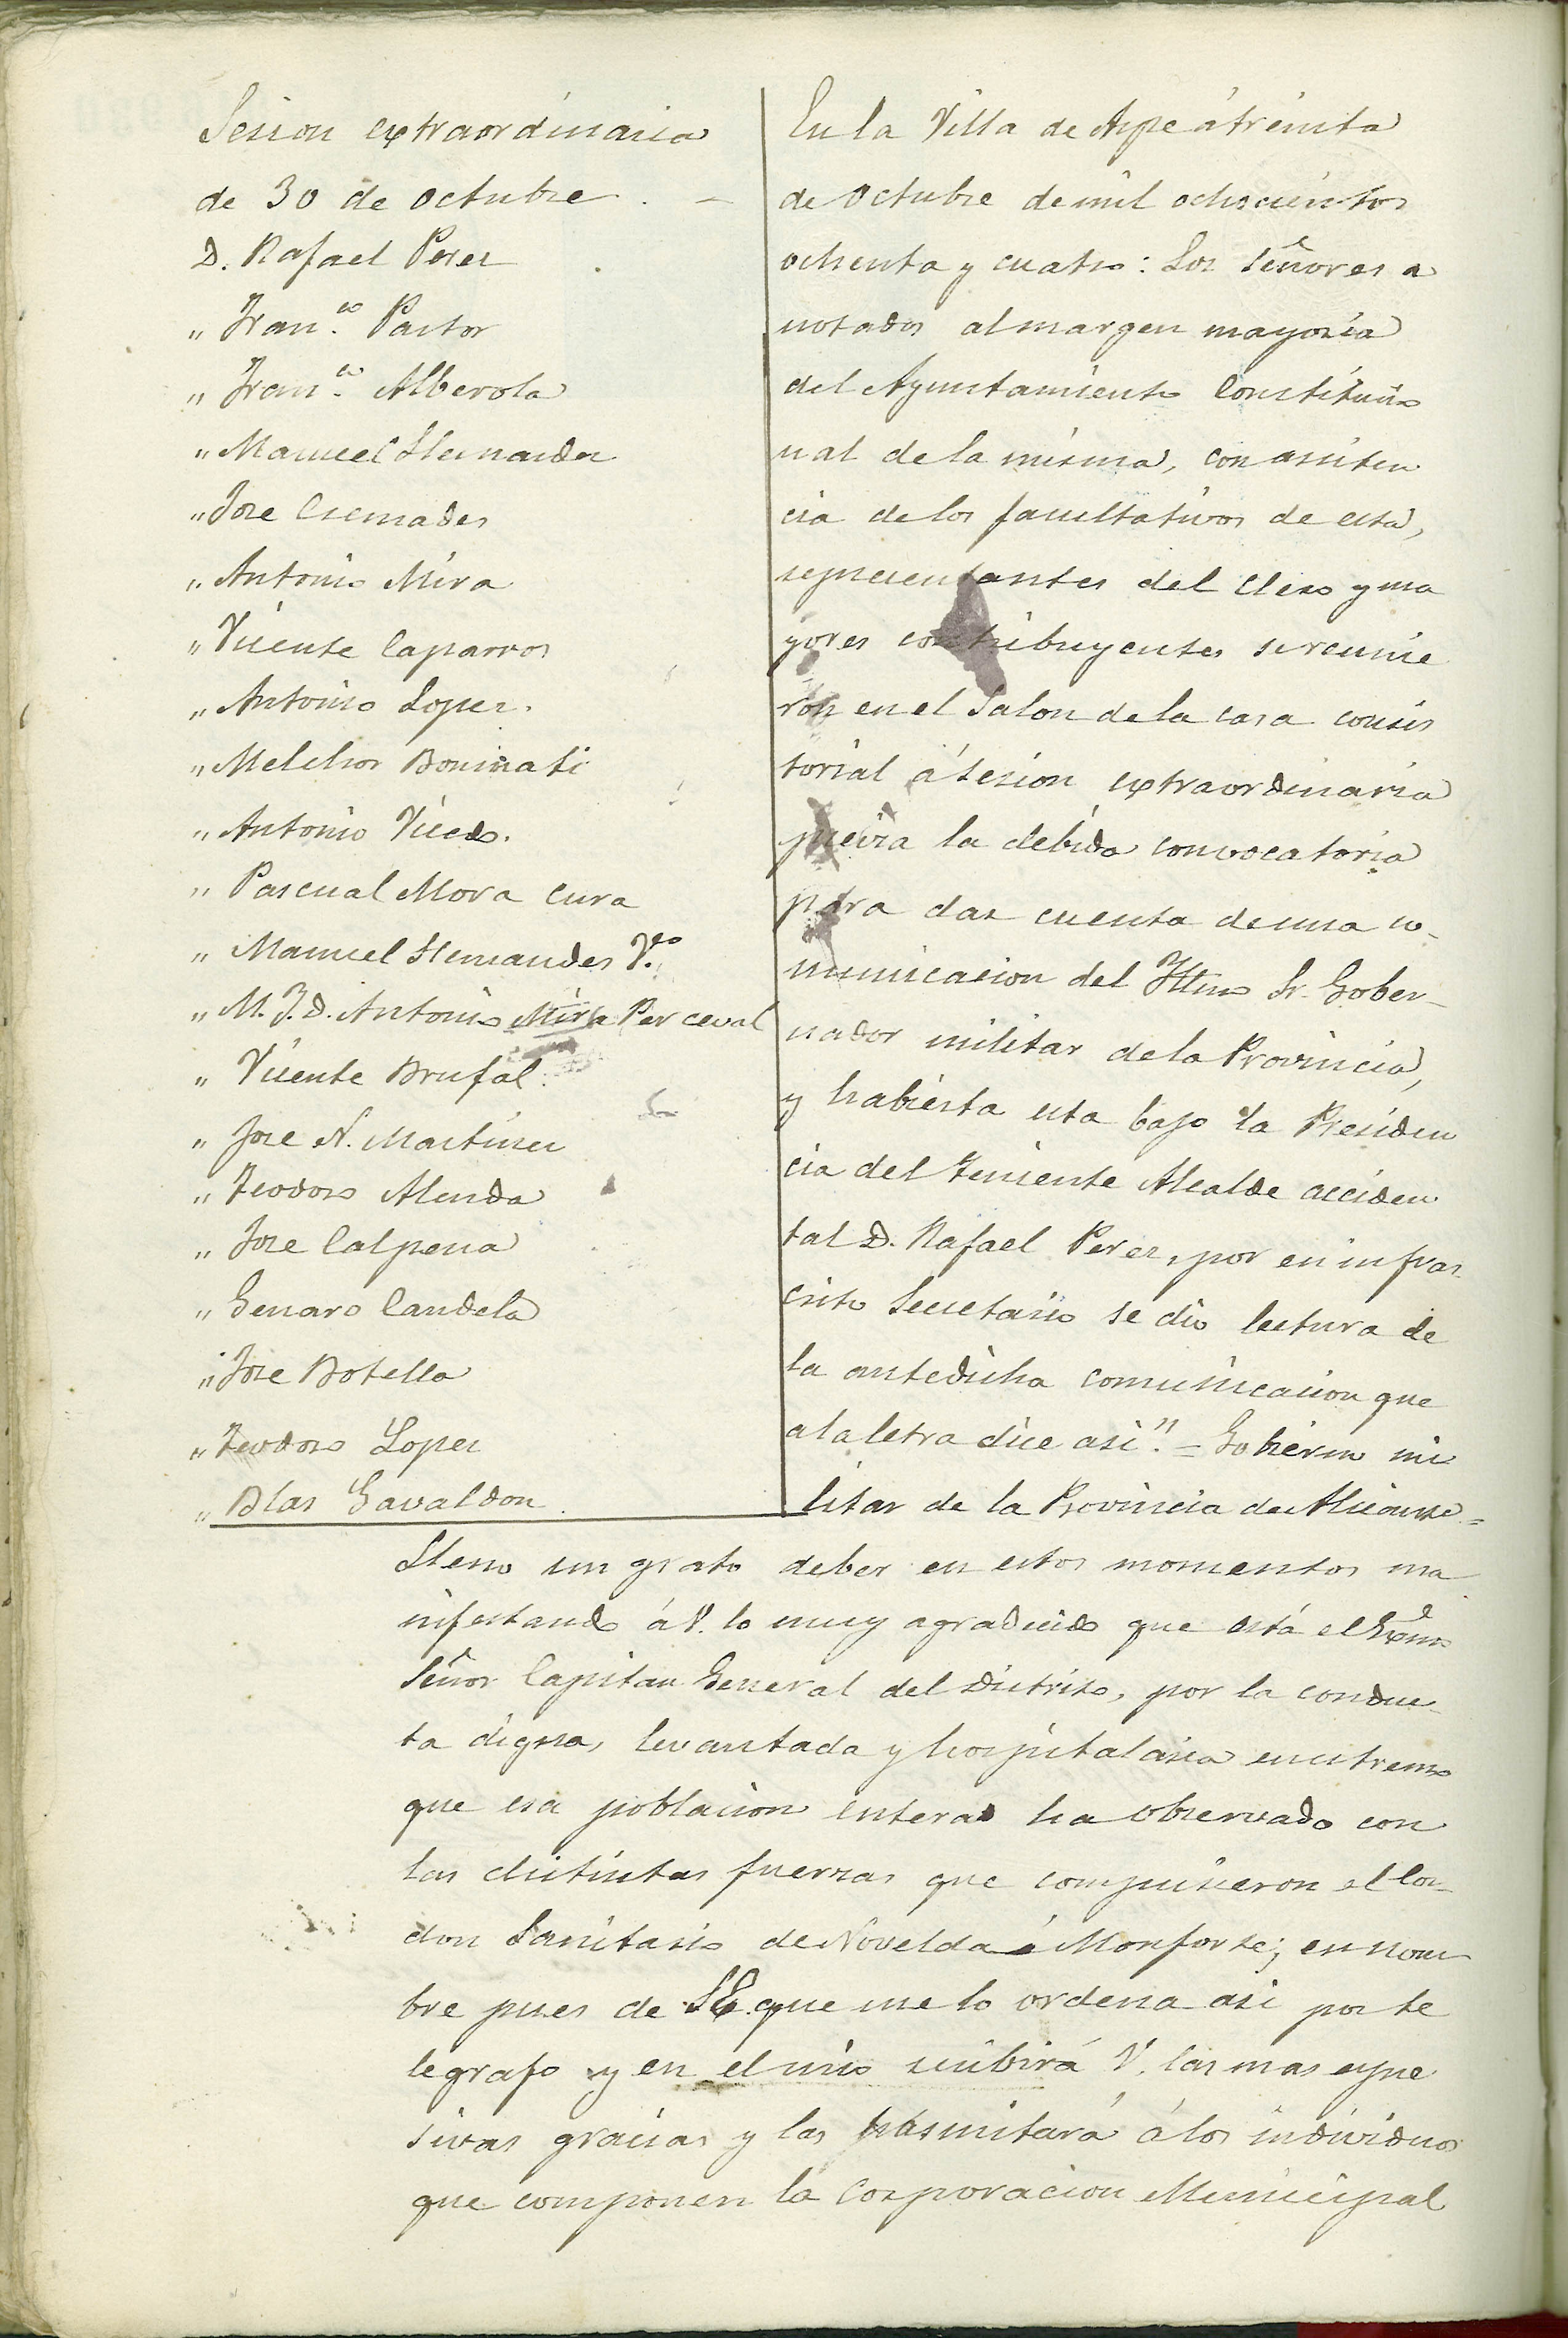 Sesion extraordinaria
de 30 de Octubre. -
D. Rafael Perez
" Fran.co Pastor
" Fran.co Alberola
" Manuel Hernandez
" Jose Cremades
" Antonio Mira
" Vicente Caparros
" Antonio Lopez.
" Melchor Bonmati
" Antonio Vicedo.
" Pascual Mora Cura
" Manuel Hernandez V.co
" M. I. D. Antonio Mira Perceval
" Vicente Brufal.
" Jose N. Martinez
" Teodoro Alenda
" Jose Calpena
" Genaro Candela
" Jose Botella
" Teodoro Lopez
" Blas Gavaldon.
En la Villa de Aspe á treinta
de Octubre de mil ochocientos
ochenta y cuatro: Los Señores a
notados al margen mayoria
del Ayuntamiento Constitucio
nal de la misma, con asisten
cia de los facultativos de esta,
representantes del Clero y ma
yores contribuyentes se reunie
ron en el Salon de la casa consis
torial á sesion extraordinaria
previa la debida convocatoria
para dar cuenta de una co-
municacion del Iltmo Sr. Gober-
nador militar de la Provincia,
y habierta esta bajo la Presiden
cia del Teniente Alcalde acciden
tal D. Rafael Perez, por en infras
crito Secretario se dio lectura de
la antedicha comunicacion que
a la letra dice asi". = Gobierno mi
litar de la Provincia de Alicante =
Lleno un grato deber en estos momentos ma
nifestando á V. lo muy agradecido que está el Exmo
Señor Capitan General del Distrito, por la conduc-
ta digna, levantada y hospitalaria en estremo
que esa poblacion entera ha observado con
las distintas fuerzas que compusieron el Cor-
don Sanitario de Novelda á Monforte; en nom
bre pues de S.E. que me lo ordena asi por te
legrafo y en el mio recibirá V. las mas espre
sivas gracias y las trasmitará á los individuos
que componen la Corporacion Municipal